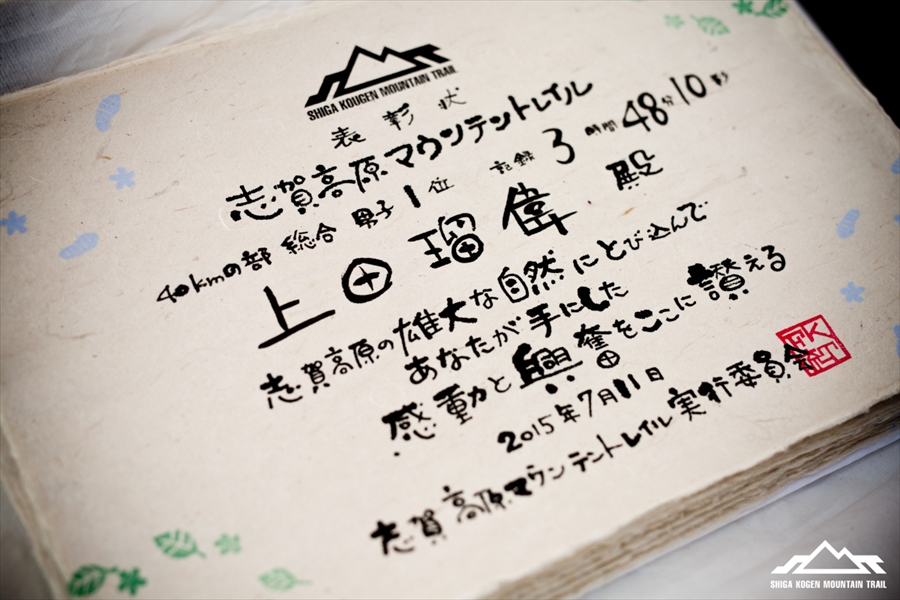 SHIGA KOUGEN MOUNTAIN TRAIL
表彰状
志賀高原マウンテントレイル
40kmの部 総合 男子1位 記録 3時間48分10秒
上田瑠偉 殿
志賀高原の雄大な自然にとび込んで
あなたが手にした
感動と興奮をここに讃える
2015年7月11日
志賀高原マウンテントレイル実行委員会
SHIGA KOGEN MOUNTAIN TRAIL